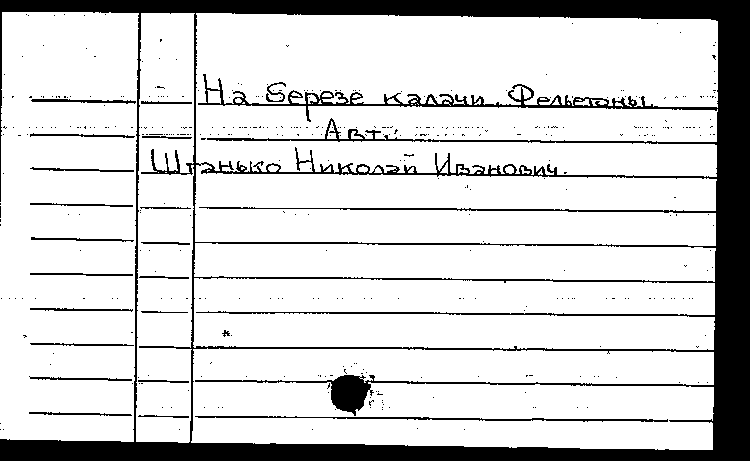 На березе калачи. Фельетоны.
Авт.:
Штанько Николай Иванович.